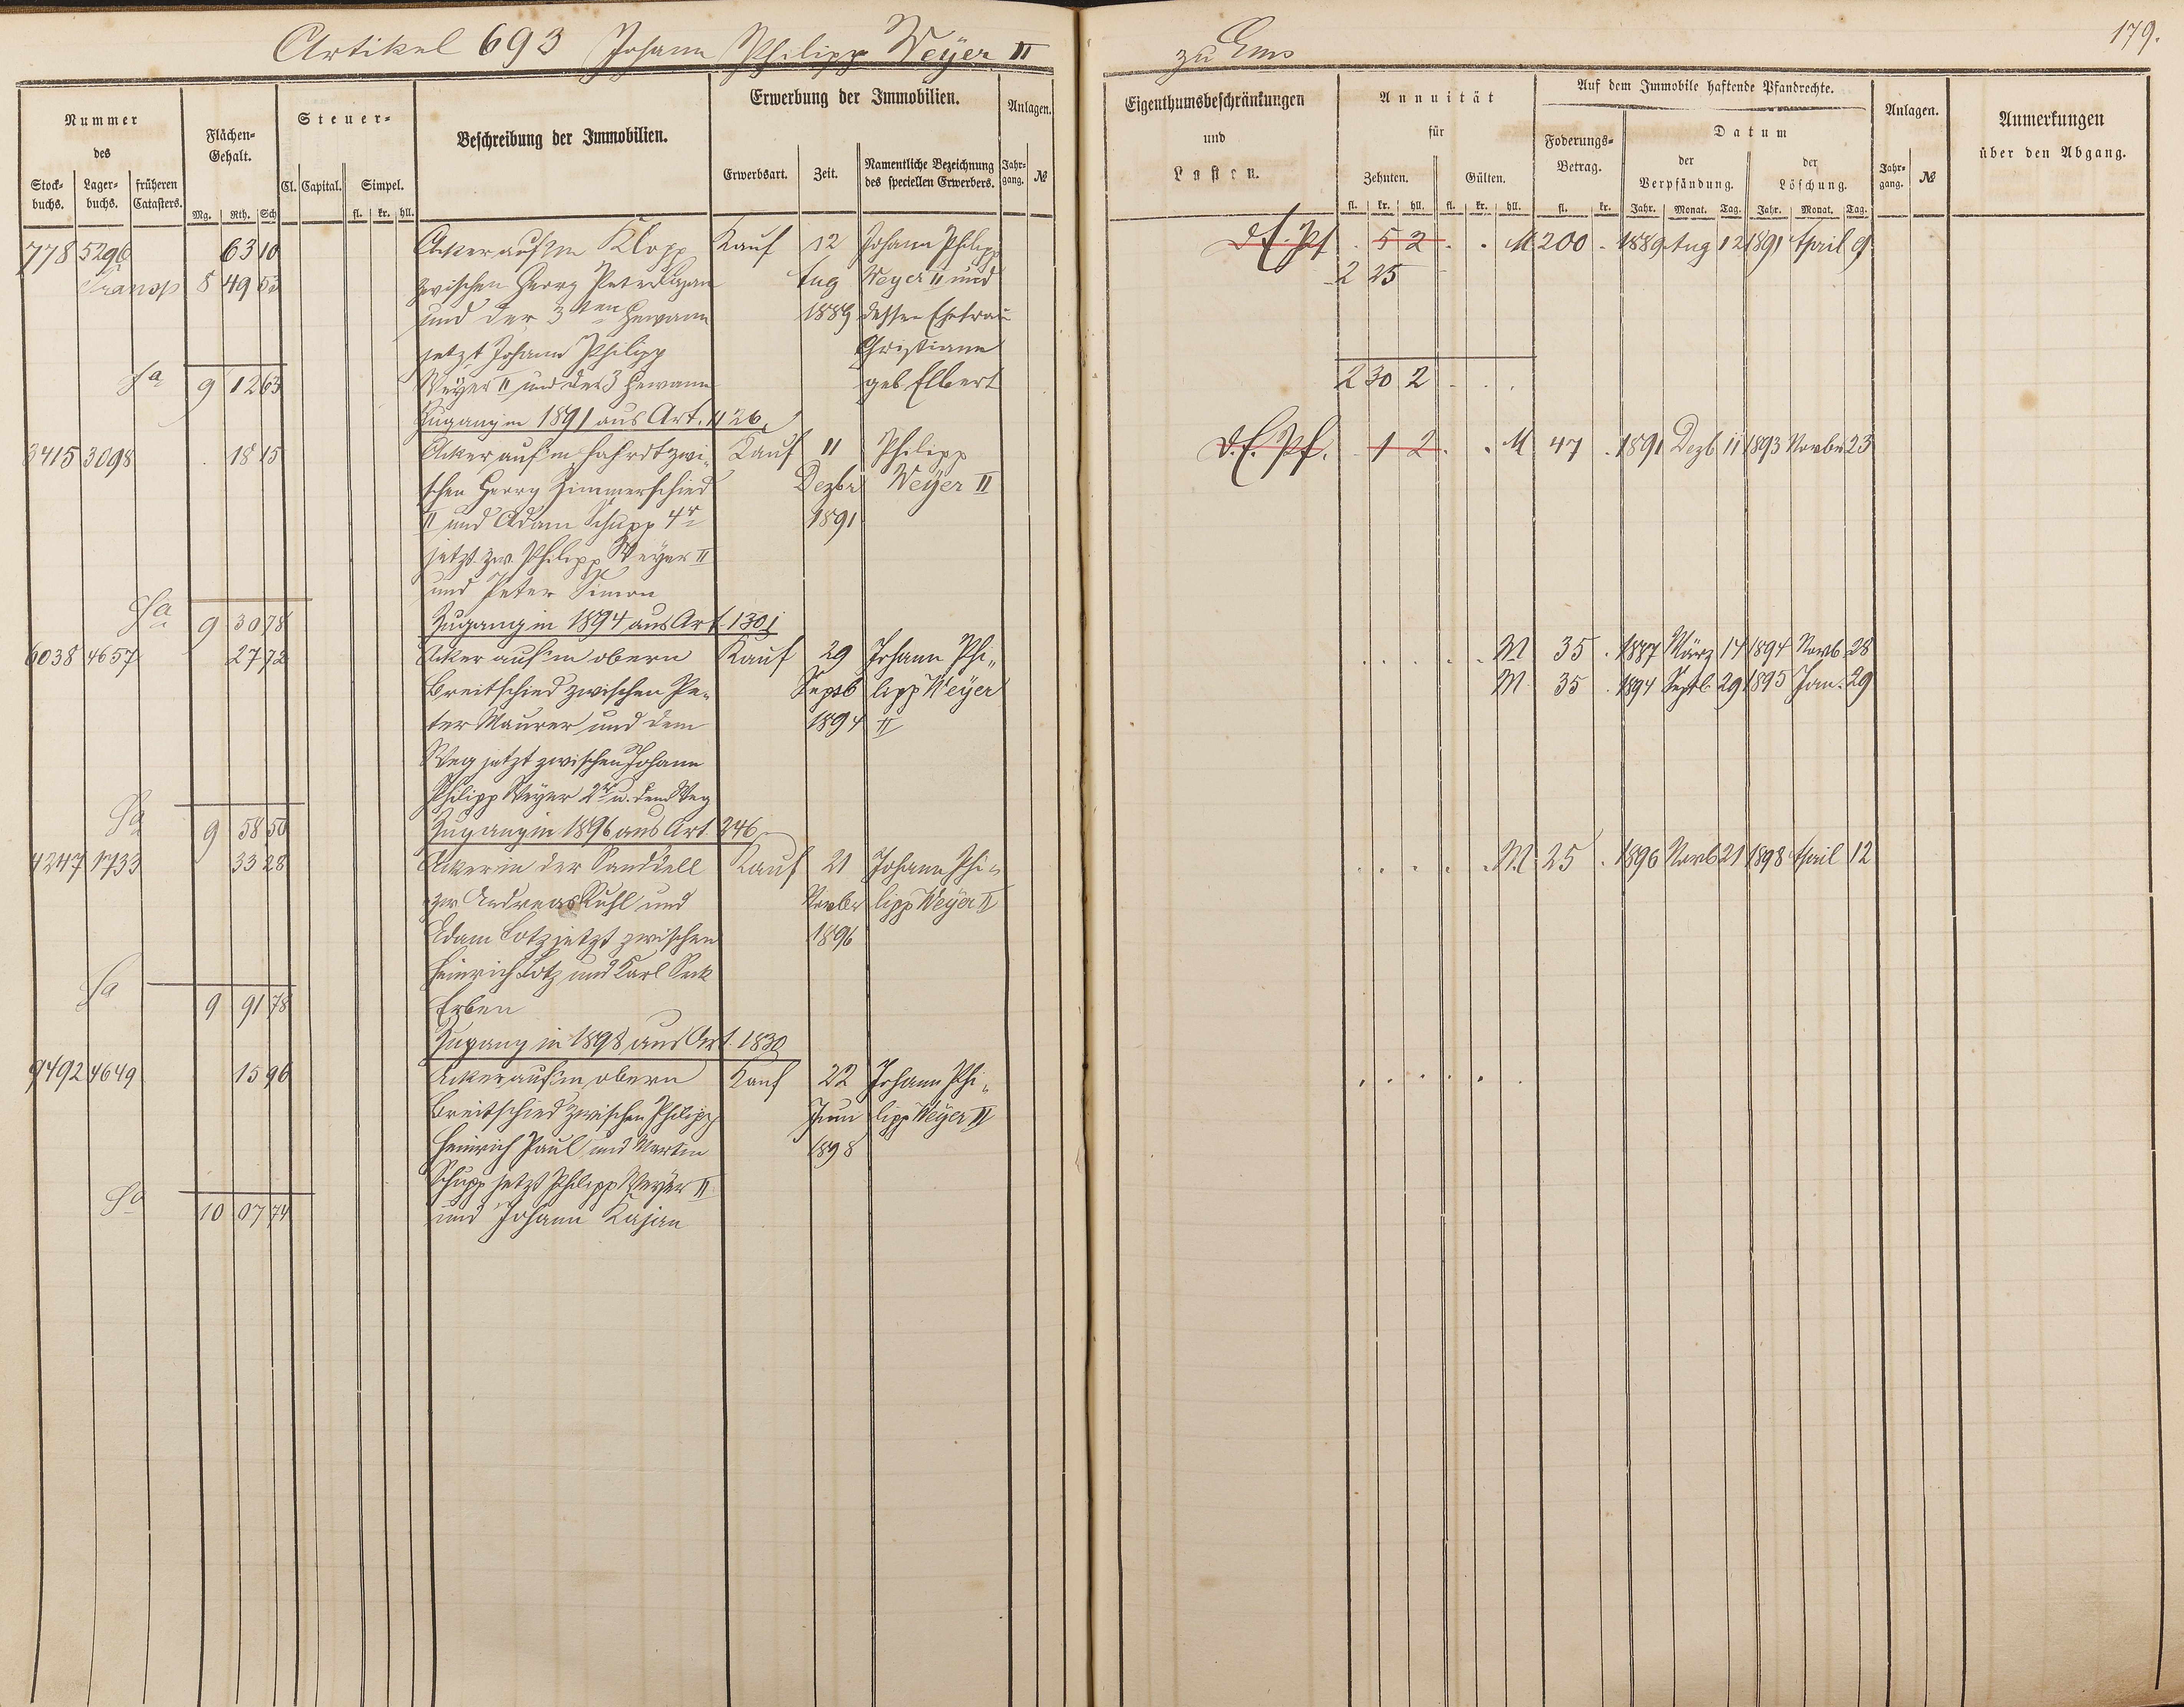 Artikel 693 Johann Philipp Weÿer II
zu Ems
179.
Nummer
des
Stock-
buchs.
Lager-
buchs.
früheren
Catasters.
Flächen-
Gehalt.
Mg. Rth. Sch
Steuer-
Cl. Capital. Simpel.
fl. kr. hll.
Beschreibung der Immobilien.
Erwerbung der Immobilien.
Erwerbsart. Zeit.
Namentliche Bezeichnung
des speciellen Erwerbers.
Anlagen.
Jahr-
gang.
№
Eigenthumsbeschränkungen
und
Lasten.
Annuität
für
Zehnten. Gülten.
fl. kr. hll. fl. kr. hll.
Auf dem Immobile haftende Pfandrechte.
Foderungs-
Betrag.
fl. kr.
Datum
der
Verpfändung.
der
Löschung.
Jahr. Monat. Tag. Jahr. Monat. Tag.
Anlagen.
Jahr-
gang.
№
Anmerkungen
über den Abgang.
778 5296 63 10 Acker auf'm Klopp Kauf 12 Johann Philipp d. E. Pf . 5 2 . . M 200 . 1889 Aug 12 1891 April 9
Transp 8 49 53 zwischen Georg Peter Aug Weyer II und 2 25
und der 3ten Gewann 1889 dessen Ehefrau
jetzt Johann Philipp Christiane
Sa 9 12 63 Weyer II und der 3 Gewann geb Elbert 2 30 2 . . .
Zugang in 1891 aus Art. 1126
3415 3098 . 18 15 Acker auf'm Fahrdt zwi- Kauf 11 Philipp d. E. Pf. . 1 2 . . M 47 . 1891 Dezb 11 1893 Novbr 23
schen Georg Zimmerschied Dezbr Weÿer II
II und Adam Schupp 4r 1891
jetzt zw. Philipp Weÿer II
und Peter Simon
Sa 9 30 78 Zugang in 1894 aus Art. 1301
6038 4657 27 72 Acker auf'm obern Kauf 29 Johann Phi- . . . . . . M 35 . 1887 März 14 1894 Novb. 28
Breitschied zwischen Pe- Septb lipp Weÿer M 35 . 1894 Septb 29 1895 Jan. 29
ter Maurer und dem 1894 II
Weg jetzt zwischen Johann
Philipp Weyer 2r u. dem Weg
Sa 9 58 50 Zugang in 1896 aus Art 246
4247 1733 33 28 Acker in der Sanddell Kauf 21 Johann Phi- . . . . . M 25 . 1896 Novb 21 1898 April 12
zw Andreas Kuhl und Novbr lipp Weÿer II
Adam Lotz jetzt zwischen 1896
Heinrich Lotz und Karl Beck
Sa 9 91 78 Erben
Zugang in 1898 aus Art. 1830
9492 4649 15 96 Acker auf'm obern Kauf 22 Johann Phi- . . . . . .
Breitschied zwischen Philipp Juni lipp Weÿer II
Heinrich Paul und Martin 1898
Schupp jetzt Philipp Weyer II
Sa 10 07 74 und Johann Kajan